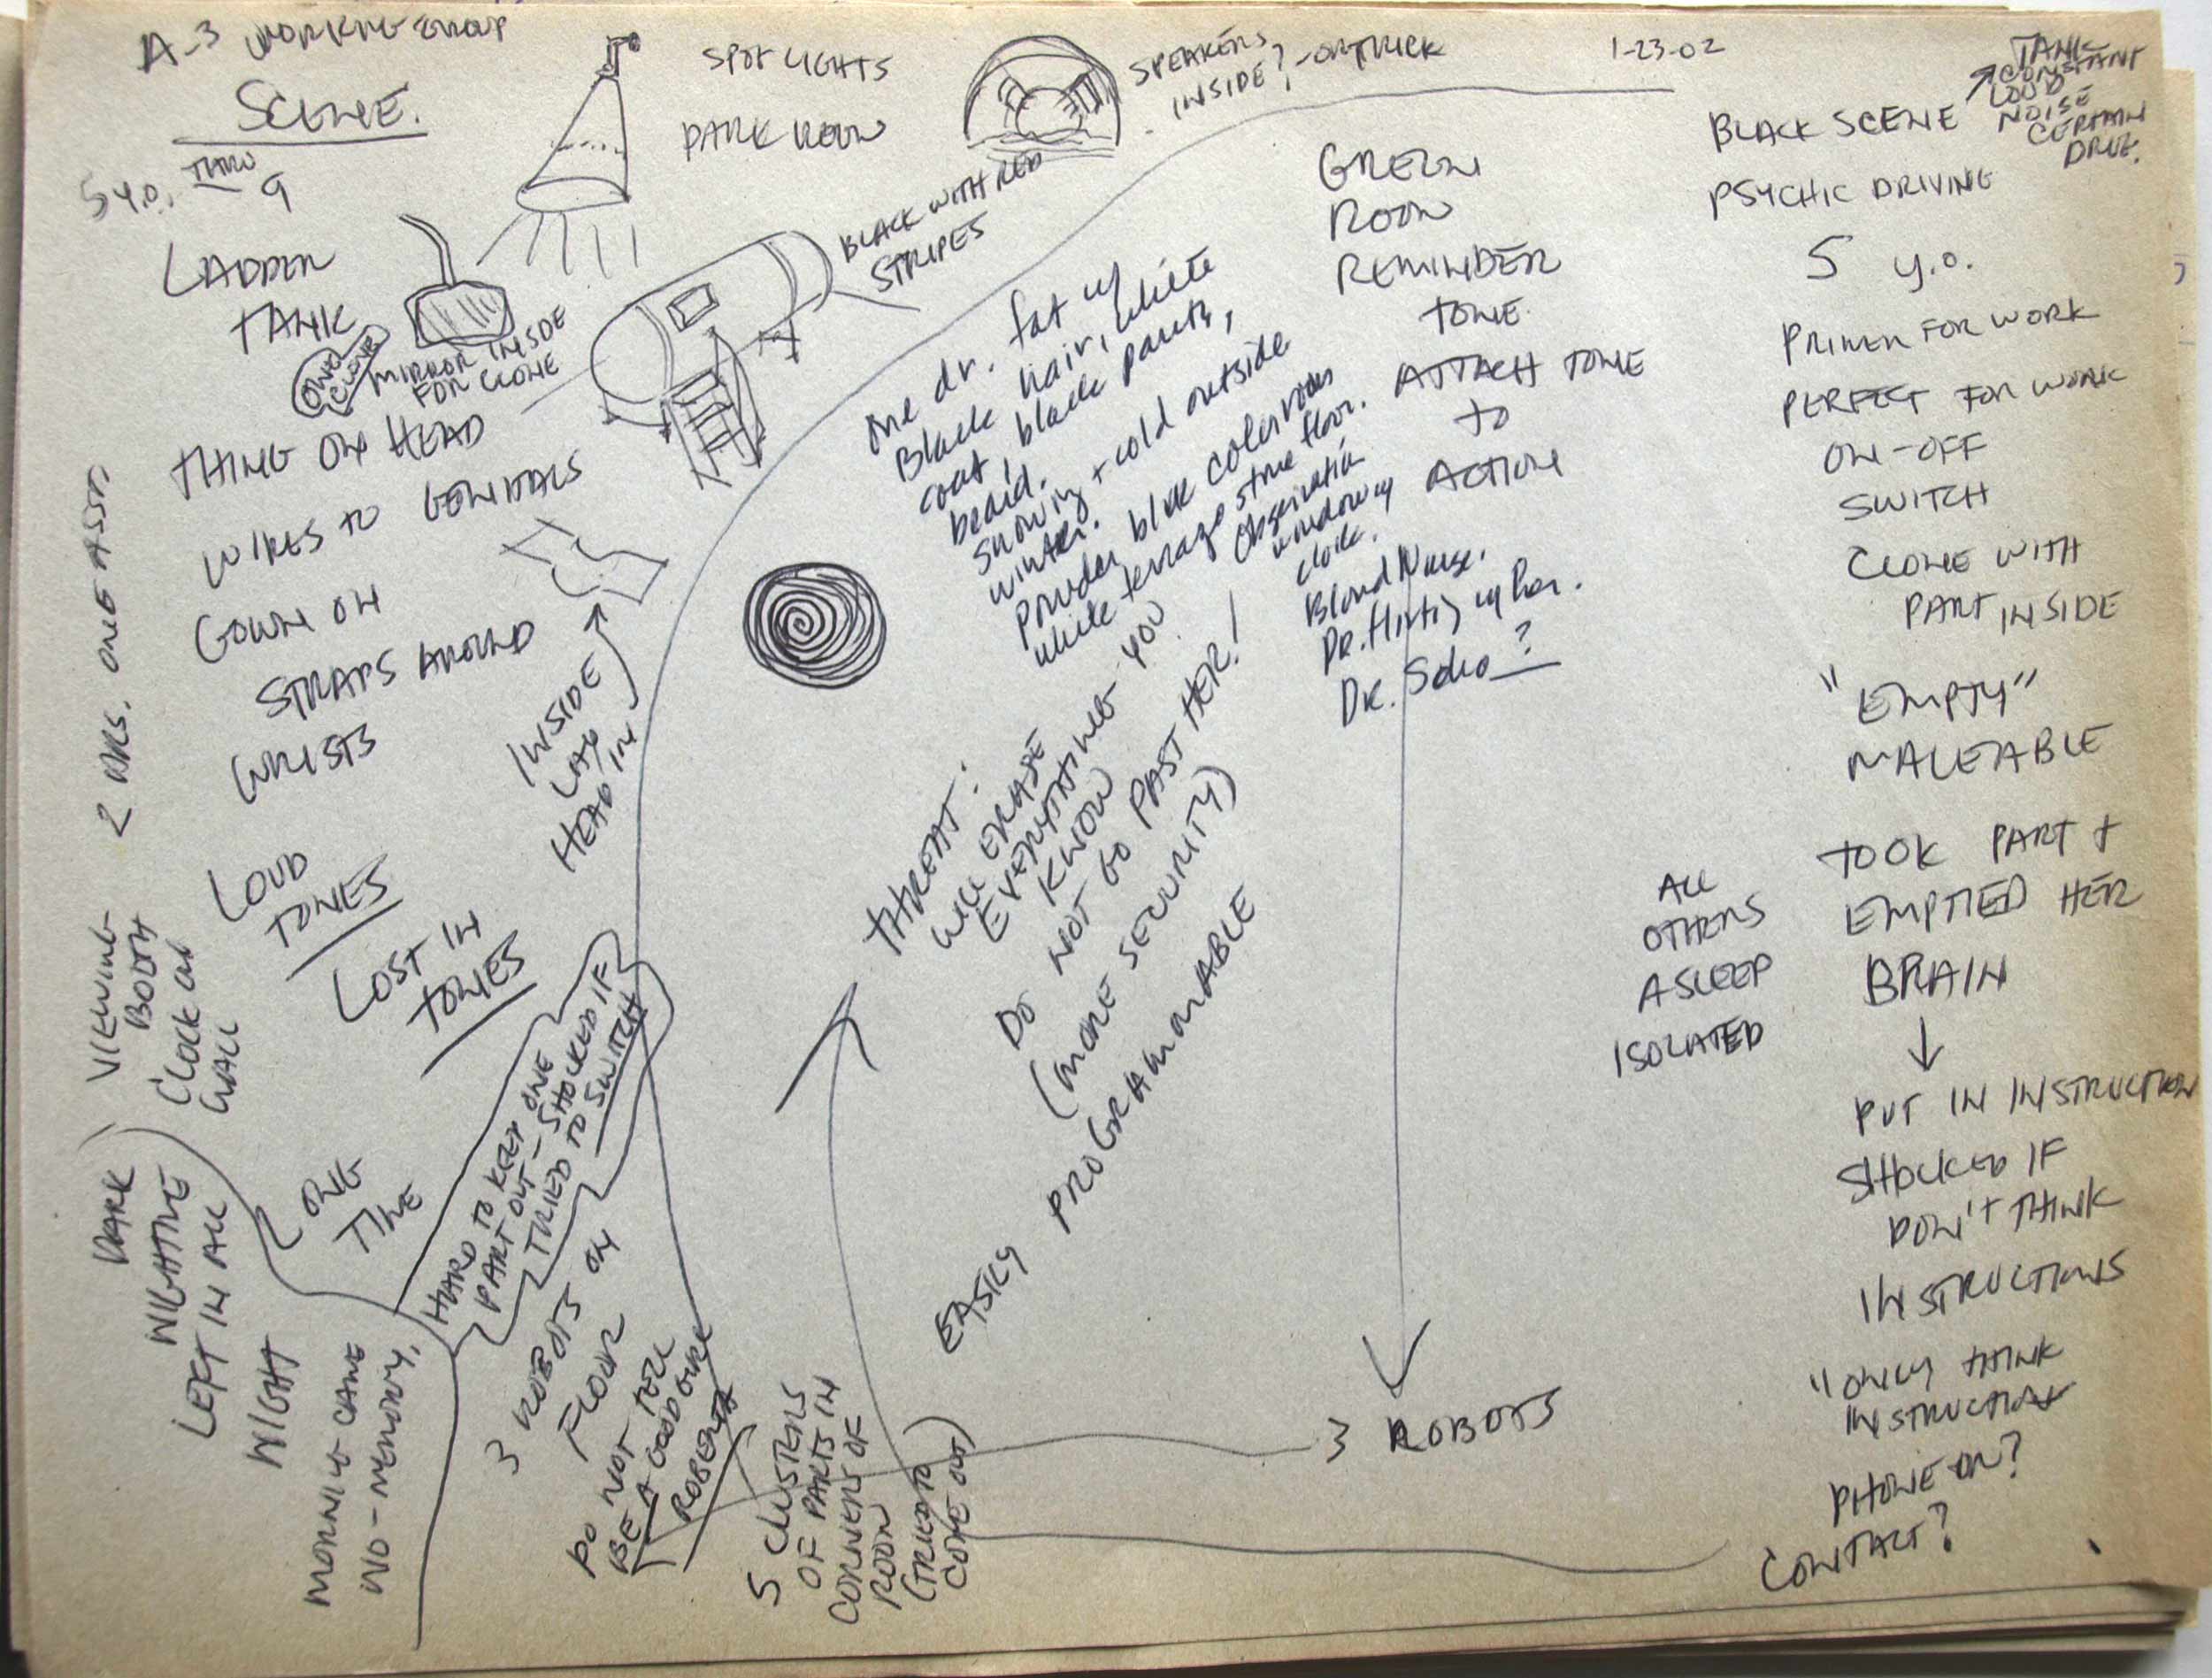 A-3 WORKING GROUP
SCENE.
5 y.o. THRU
9
LADDER
TANK
ONE
CLONE
MIRROR INSIDE
FOR CLONE
THING ON HEAD
WIRES TO GENITALS
GOWN ON
STRAPS AROUND
WRISTS
LOUD
TONES
LOST IN
TONES
2 DRS. ONE ASST.
VIEWING
BOOTH
CLOCK ON
WALL
DARK
NIGHTIME
LEFT IN ALL
NIGHT
MORNING CAME
NO-MEMORY.
ONE
TIME
HARD TO KEEP ONE
PART OUT - SHOCKED IF
TRIED TO SWITCH
3 ROBOTS ON
FLOOR
DO NOT TELL
BE A GOOD GIRL
ROBERTA
5 CLUSTERS
OF PARTS IN
CORNERS OF
ROOM
(TRIED TO
COME OUT)
INSIDE
LAY
HEAD IN
SPOT LIGHTS
DARK ROOM
SPEAKERS
INSIDE? - OR TRICK
BLACK WITH RED
STRIPES
one dr. fat w/
Black hair, white
coat, black pants,
beard.
snowing + cold outside
winter.
powder blue color room
white terrazo stone floor.
Observation
window w/
clock.
Blond Nurse.
DR. flirting w/ her.
DR. Scho ?
THREAT:
WILL ERASE
EVERYTHING YOU
KNOW
DO NOT GO PAST HER!
(MORE SECURITY)
EASILY PROGRAMMABLE
GREEN
ROOM
REMINDER
TONE.
ATTACH TONE
TO
ACTION
3 ROBOTS
1-23-02
BLACK SCENE
TANK
CONSTANT
LOUD
NOISE
CERTAIN
DRUG.
PSYCHIC DRIVING
5 y.o.
PRIMER FOR WORK
PERFECT FOR WORK
ON-OFF
SWITCH
CLONE WITH
PART INSIDE
"EMPTY"
MALEABLE
TOOK PART +
EMPTIED HER
BRAIN
ALL
OTHERS
ASLEEP
ISOLATED
PUT IN INSTRUCTION
SHOCKED IF
DON'T THINK
INSTRUCTIONS
"ONLY THINK
INSTRUCTION
PHONE ON?
CONTACT?